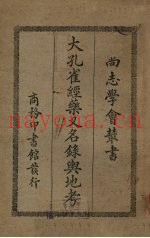 尚志學會叢書
大孔雀經藥叉名錄輿地考
商務印書館發行
nayona.cn